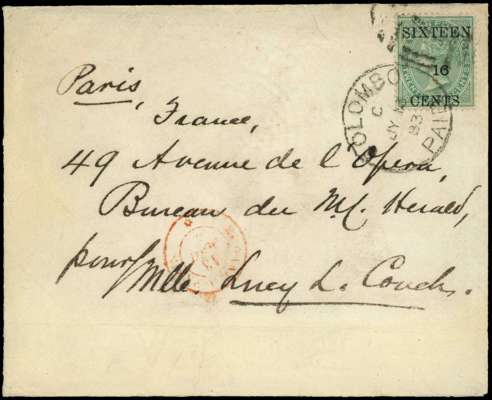 SIXTEEN
16
CENTS
COLOMBO
PAID
C
83
Paris,
France,
49 Avenue de l'Opera,
Bureau du N.Y. Herald,
pour Mlle. Lucy L. Couch.